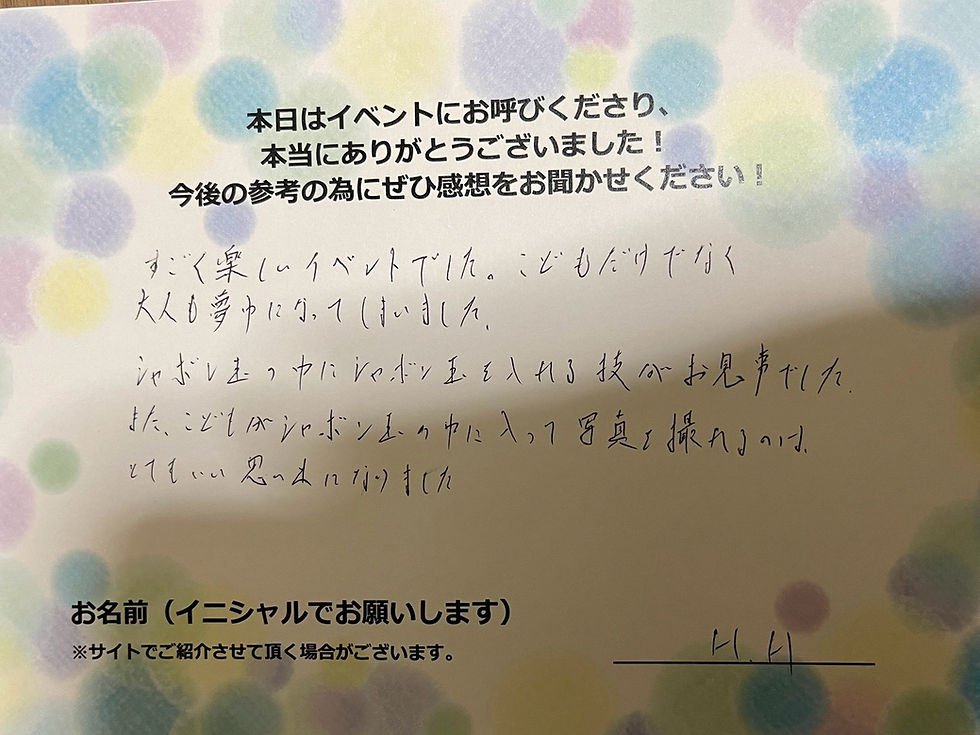 本日はイベントにお呼びくださり、
本当にありがとうございました！
今後の参考の為にぜひ感想をお聞かせください！
すごく楽しいイベントでした。こどもだけでなく
大人も夢中になってしまいました。
シャボン玉の中にシャボン玉を入れる技がお見事でした。
また、こどもがシャボン玉の中に入って写真を撮れるのは、
とてもいい思い出になりました
お名前（イニシャルでお願いします）
※サイトでご紹介させて頂く場合がございます。
H.H